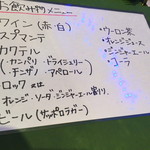 お飲み物メニュー
ワイン(赤・白)
スプマンテ
カクテル
(・カンパリ ・ドライシェリー
・チンザノ ・アペロール)
ロック又は
オレンジ・ソーダ・ジンジャーエール割り
ビール(サッポロラガー)
・ウーロン茶
・オレンジジュース
・ジンジャーエール
・コーラ